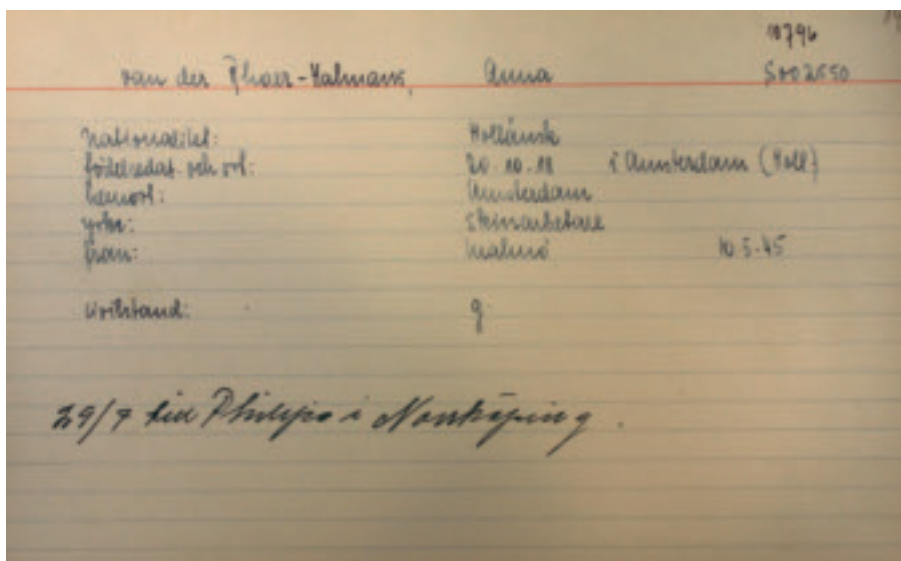 10796
van der Anna S002550
nationalitet: Holländsk
födelsedat. och ort: 20.10.18 i Amsterdam (Holl)
hemort: Amsterdam
yrke:
från: Malmö 10.5.45
civilstand: g
29/7 till Philips i Norrköping.